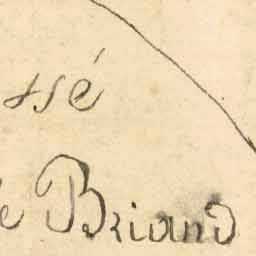 ssé
e Briand